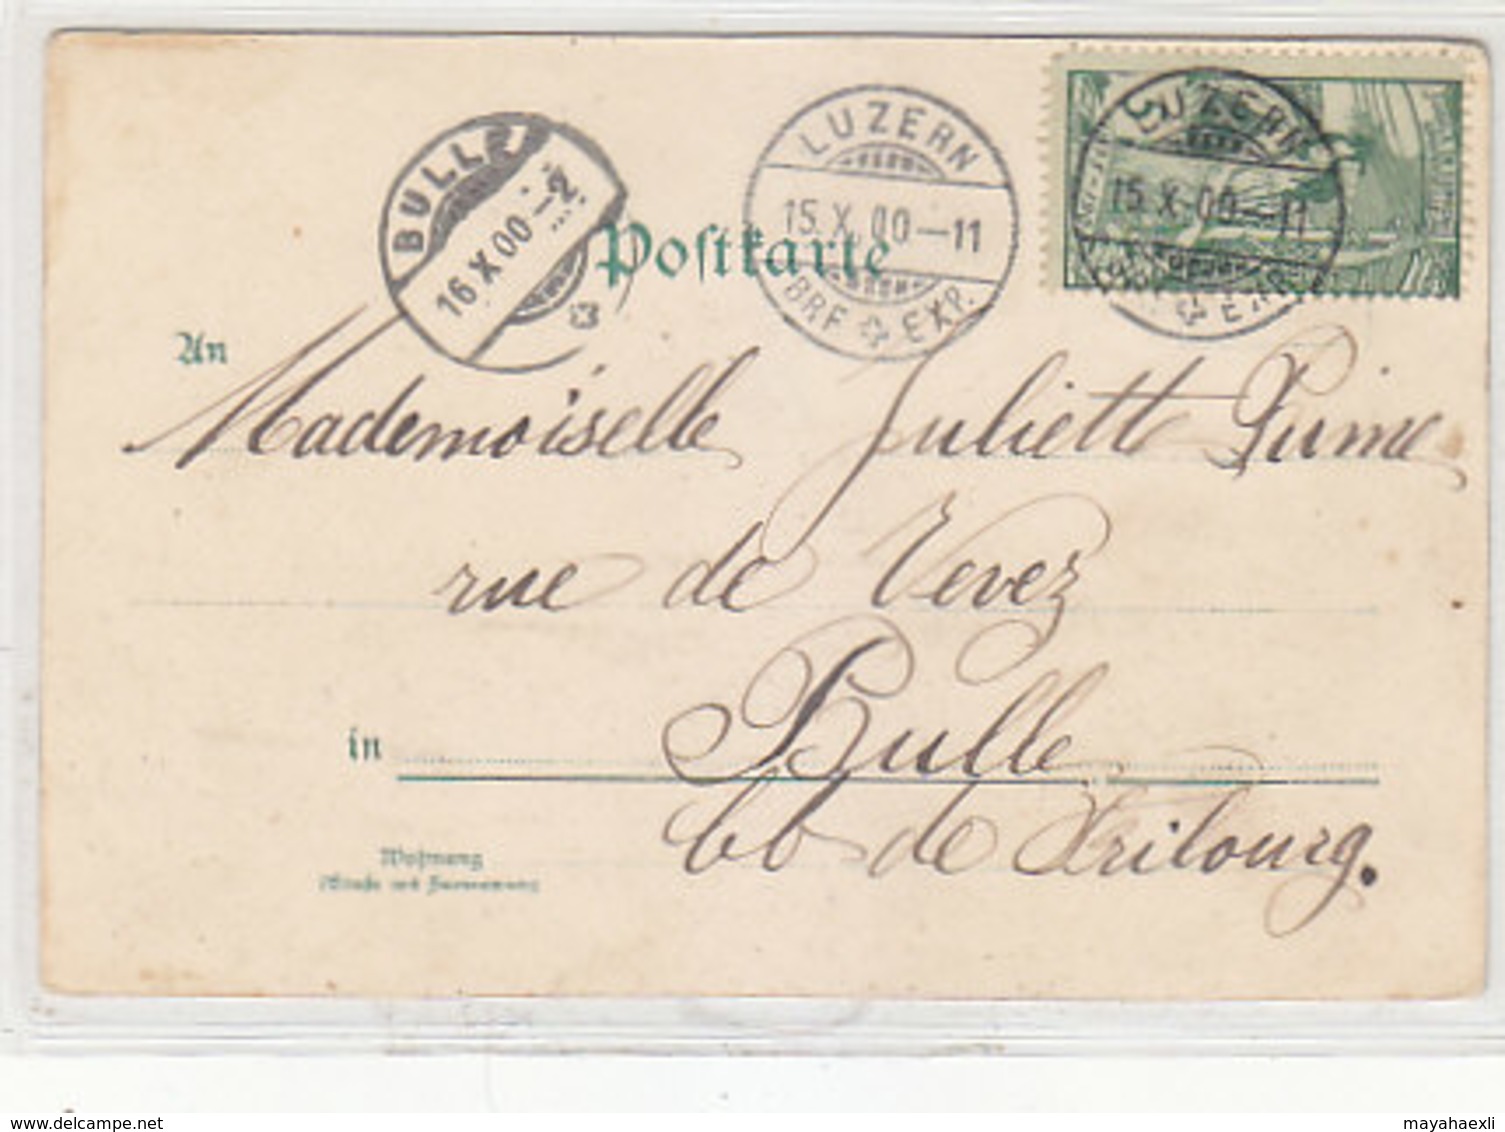 BULLE
16 X 00 –2
LUZERN
15. X. 00 –11
BRF EXP.
LUZERN
15. X. 00 –11
EXP.
Postkarte
An
Mademoiselle Juliette
rue de Vevez
in Bulle
de Fribourg.
Wohnung
delcampe.net
mayahaexli